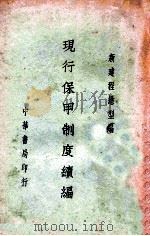 新建程懋型編
現行保甲制度續編
中華書局印行